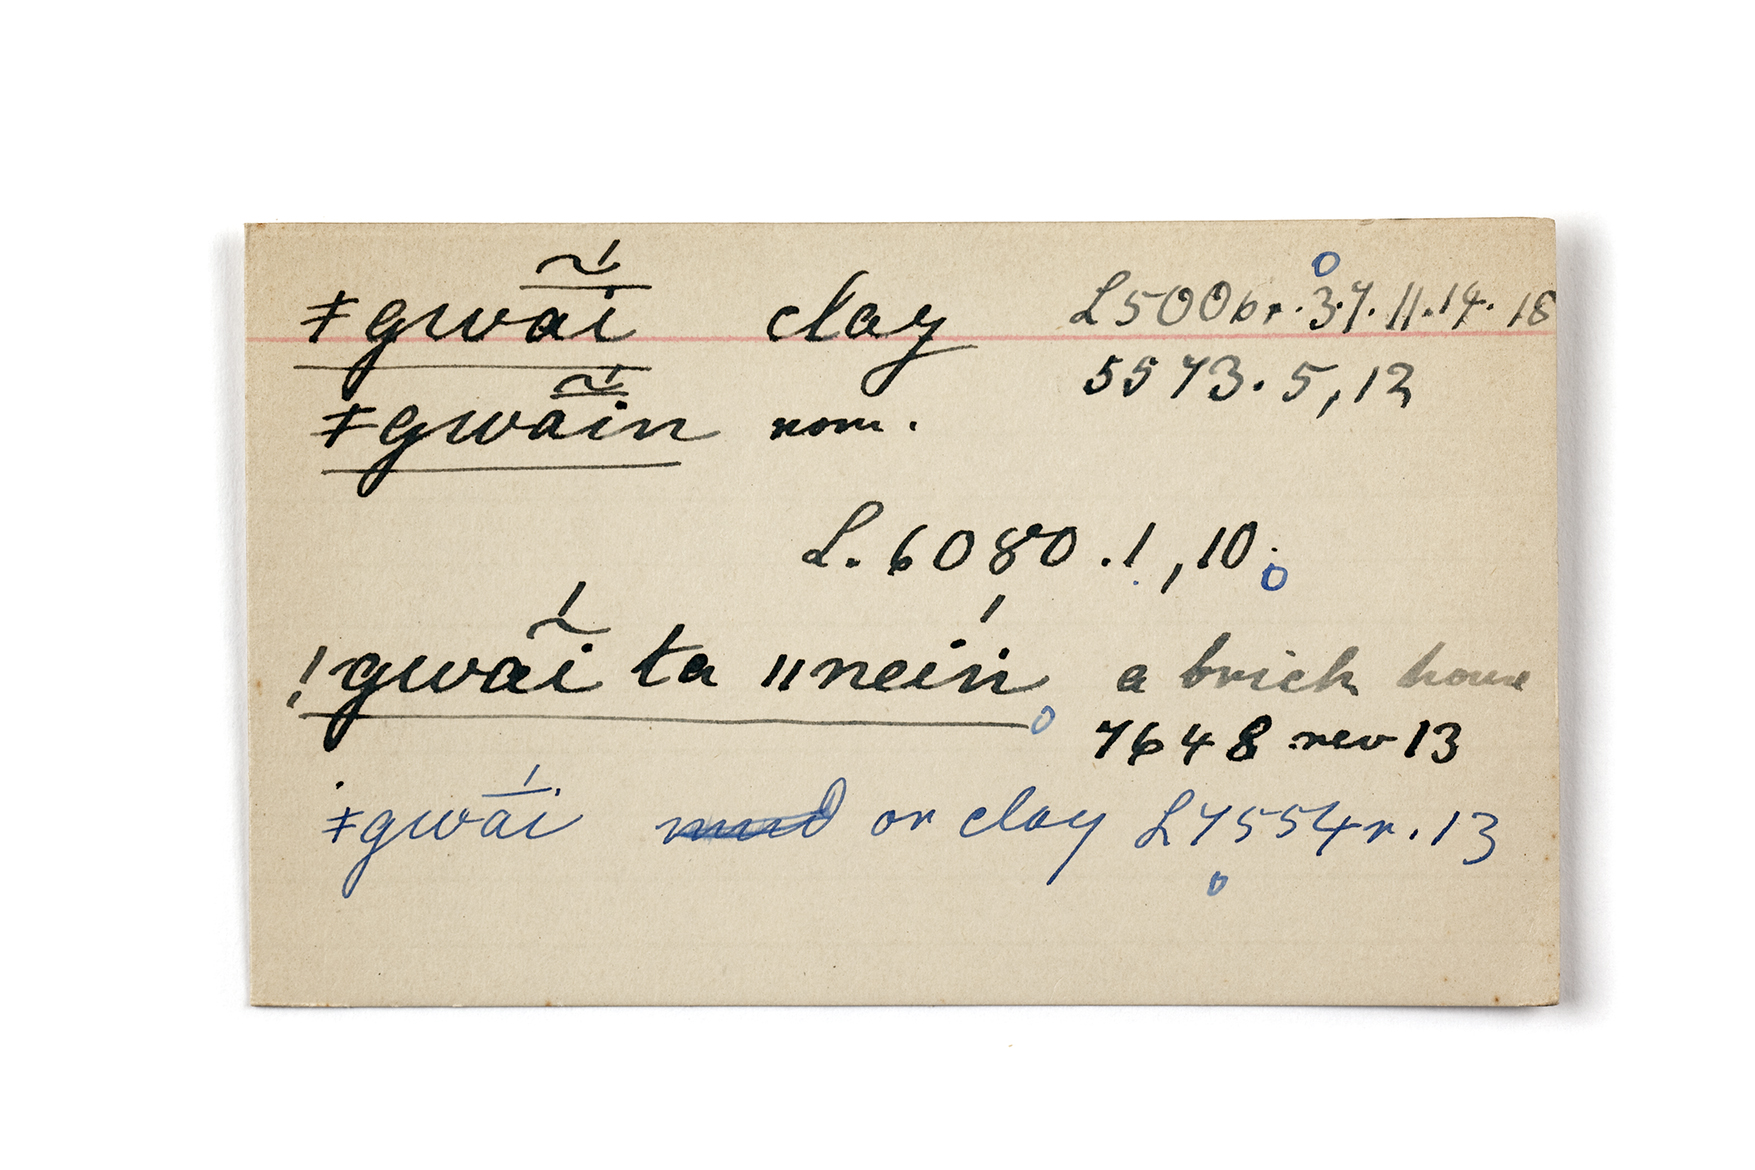 ǂgwā̃́i clay L5006r.3.7.11.14.18
5573.5,12
ǂgwā̃́in nom.
L.6080.1,10.
!gwã́i ta ǁneiń a brick house
7648 rev 13
ǂgwā́i mud or clay L7554r.13